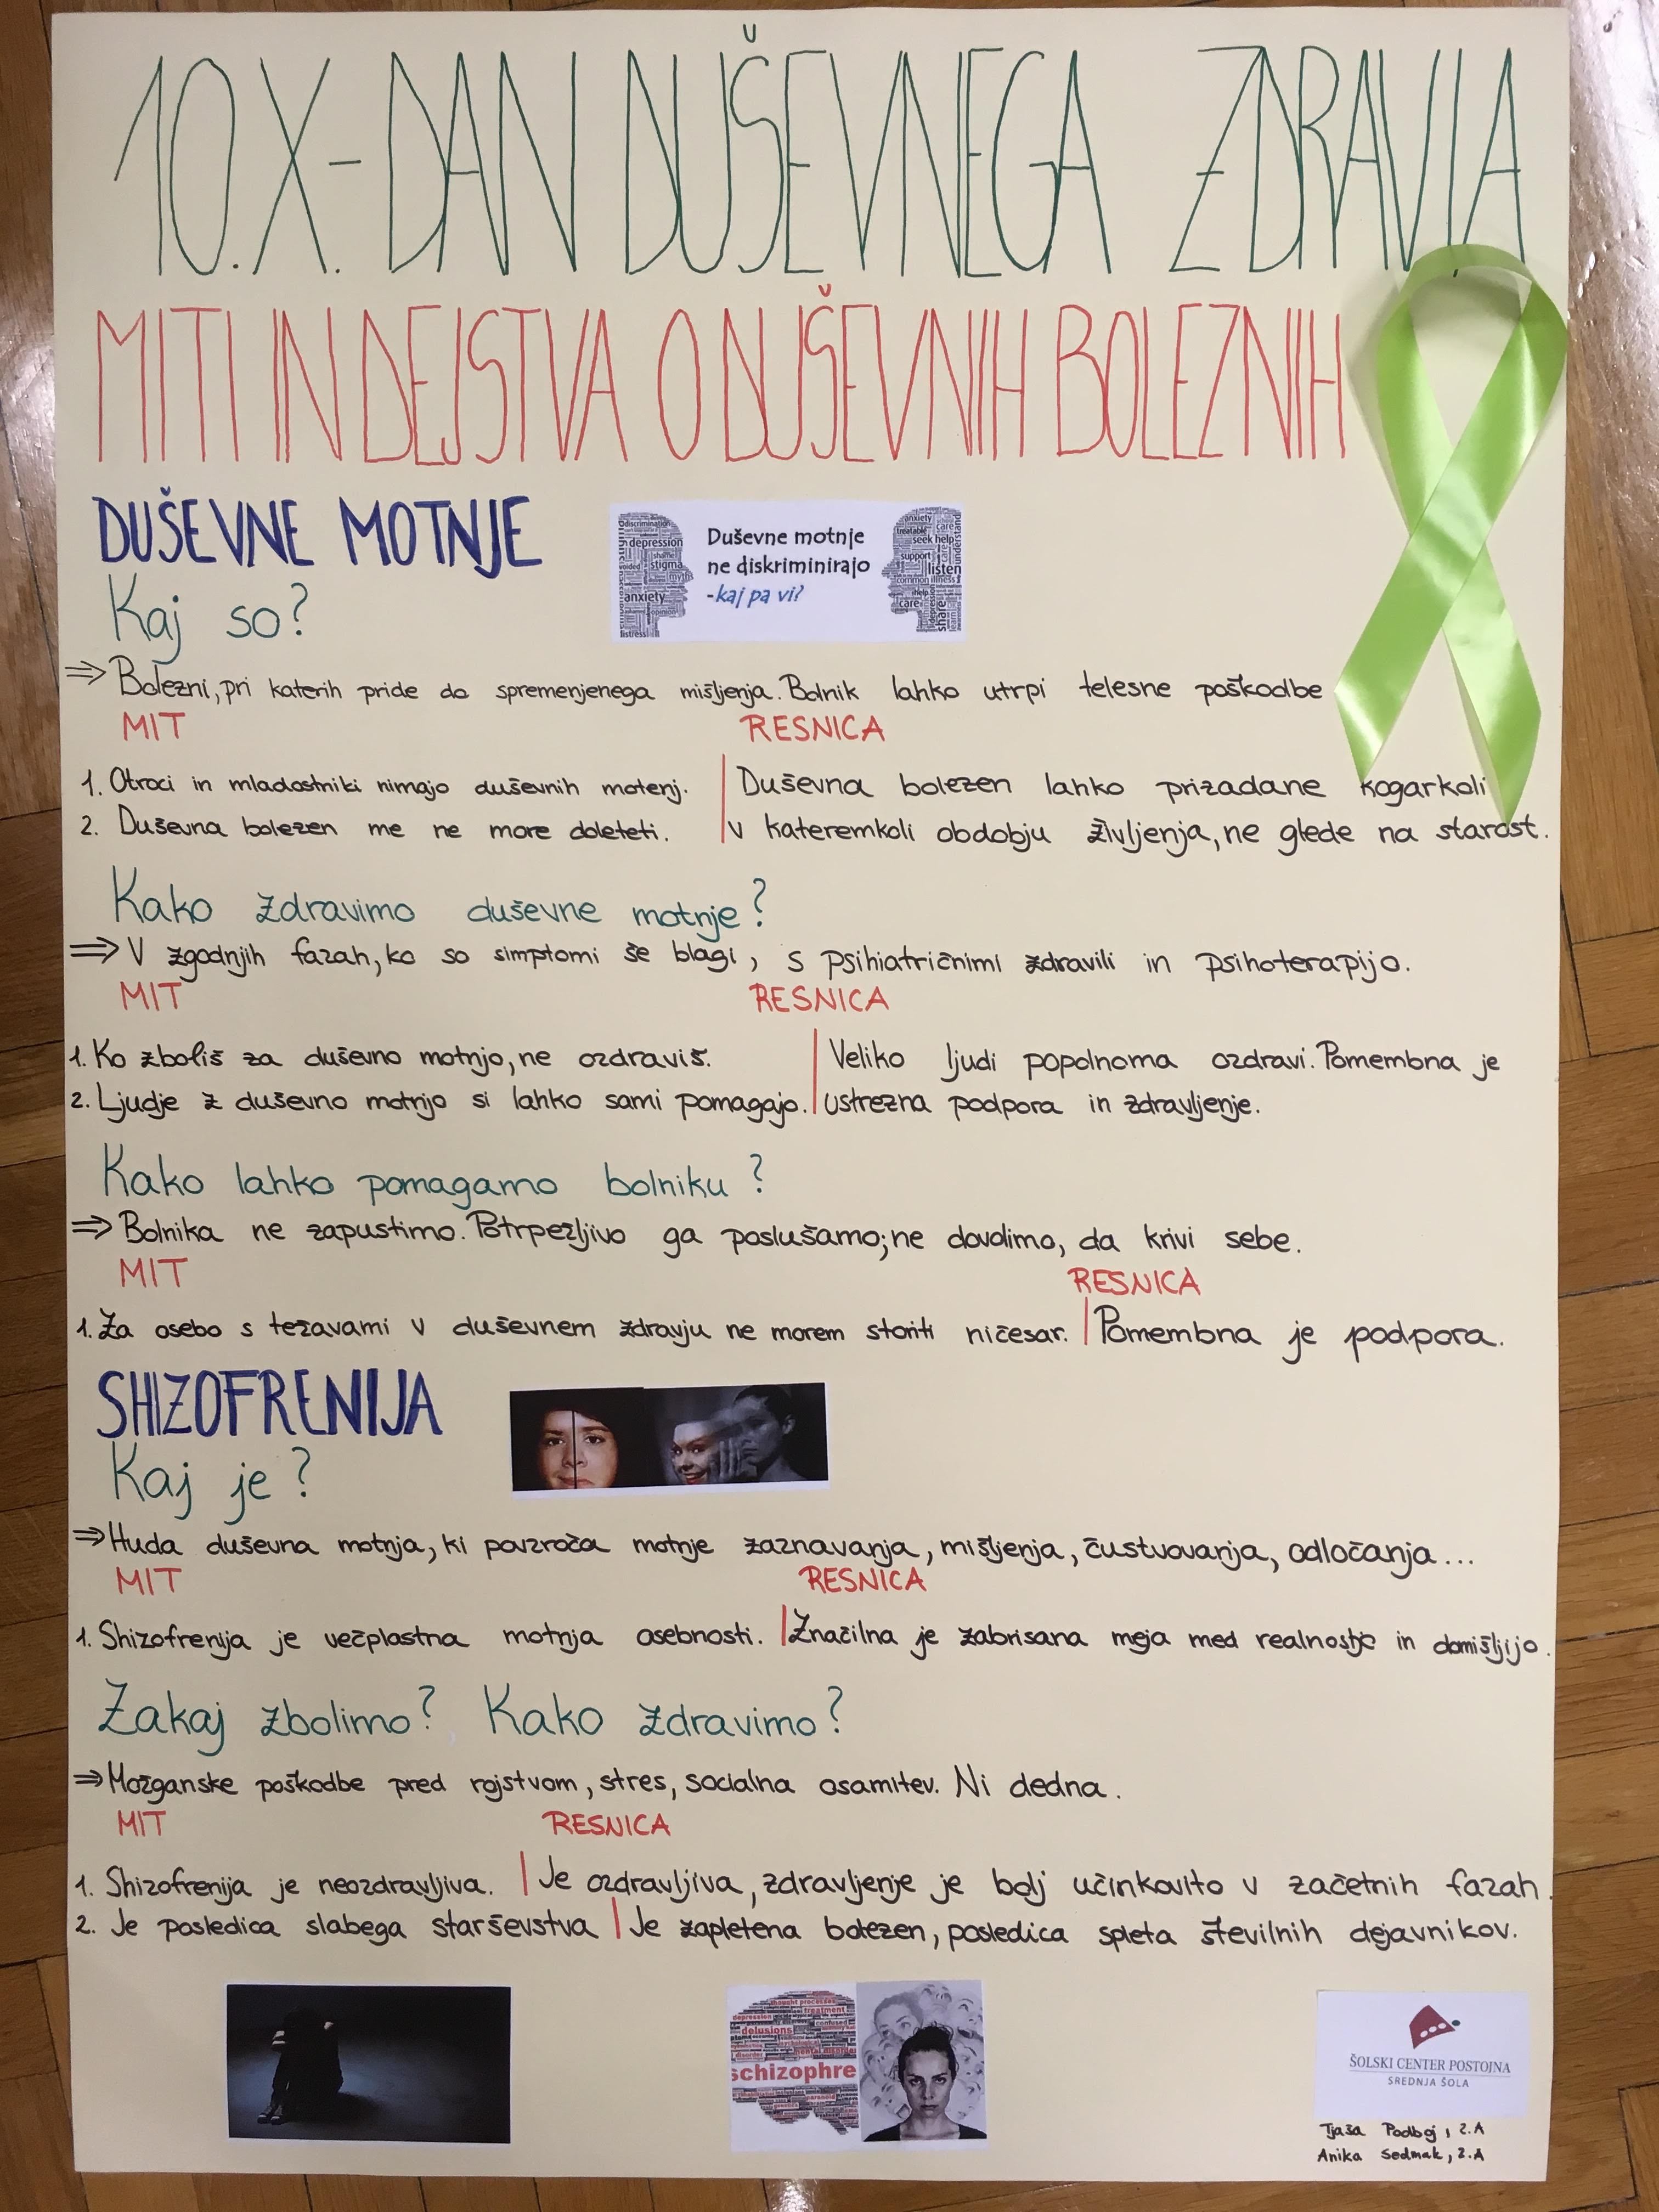 10.X.- DAN DUŠEVNEGA ZDRAVJA
MITI IN DEJSTVA O DUŠEVNIH BOLEZNIH
DUŠEVNE MOTNJE
Duševne motnje
ne diskriminirajo
-kaj pa vi?
discrimination
depression
stigma
myth
anxiety
distress
anxiety
treatable
care
seek help
support
listen
common illness
help
care
share
understand
Kaj so?
⇒ Bolezni, pri katerih pride do spremenjenega mišljenja. Bolnik lahko utrpi telesne poškodbe
MIT RESNICA
1. Otroci in mladostniki nimajo duševnih motenj. | Duševna bolezen lahko prizadane kogarkoli
2. Duševna bolezen me ne more doleteti. | v kateremkoli obdobju življenja, ne glede na starost.
Kako zdravimo duševne motnje?
⇒ V zgodnjih fazah, ko so simptomi še blagi, s psihiatričnimi zdravili in psihoterapijo.
MIT RESNICA
1. Ko zboliš za duševno motnjo, ne ozdraviš. | Veliko ljudi popolnoma ozdravi. Pomembna je
2. Ljudje z duševno motnjo si lahko sami pomagajo. | ustrezna podpora in zdravljenje.
Kako lahko pomagamo bolniku?
⇒ Bolnika ne zapustimo. Potrpežljivo ga poslušamo; ne dovolimo, da krivi sebe.
MIT RESNICA
1. Za osebo s težavami v duševnem zdravju ne morem storiti ničesar. | Pomembna je podpora.
SHIZOFRENIJA
Kaj je?
⇒ Huda duševna motnja, ki povzroča motnje zaznavanja, mišljenja, čustvovanja, odločanja...
MIT RESNICA
1. Shizofrenija je večplastna motnja osebnosti. | Značilna je zabrisana meja med realnostjo in domišljijo.
Zakaj zbolimo? Kako zdravimo?
⇒ Možganske poškodbe pred rojstvom, stres, socialna osamitev. Ni dedna.
MIT RESNICA
1. Shizofrenija je neozdravljiva. | Je ozdravljiva, zdravljenje je bolj učinkovito v začetnih fazah.
2. Je posledica slabega starševstva | Je zapletena bolezen, posledica spleta številnih dejavnikov.
thought processes
treatment
depression
confused
delusions
mental disorder
disorder
schizophre
ŠOLSKI CENTER POSTOJNA
SREDNJA ŠOLA
Tjaša Podboj, 2.A
Anika Sedmak, 2.A